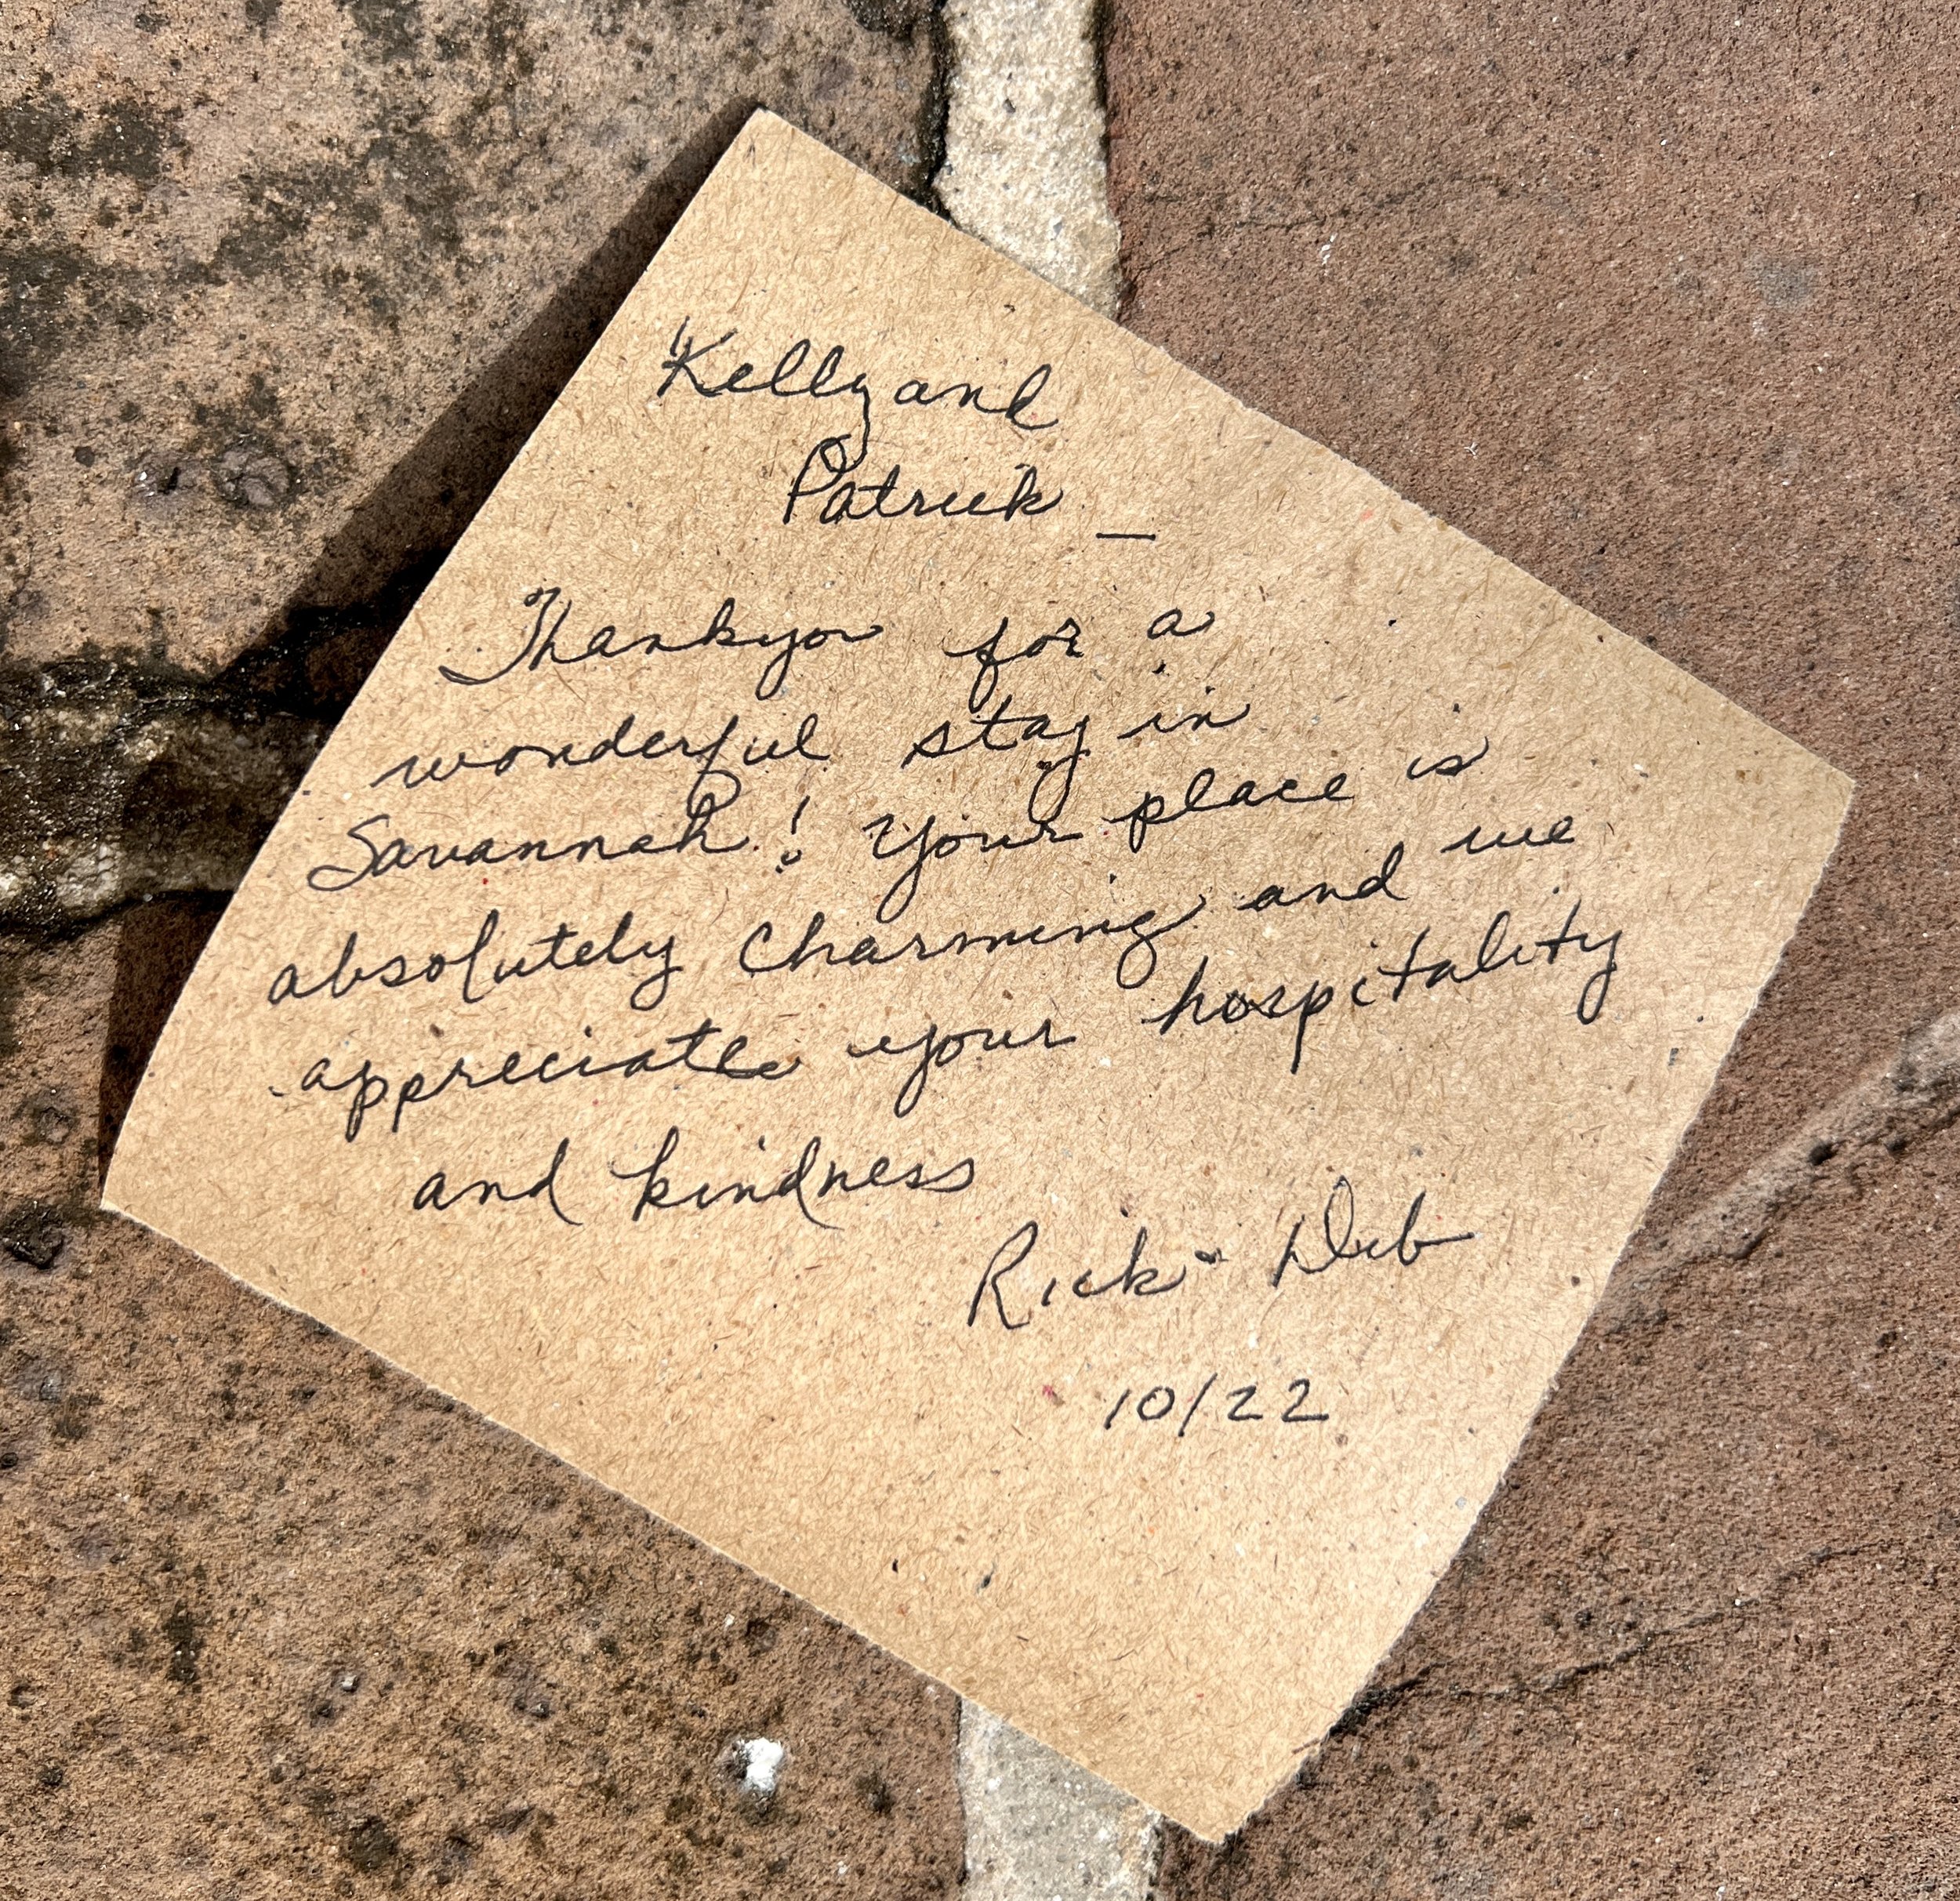 Kelly and
Patrick —
Thankyou for a
wonderful stay in
Savannah! Your place is
absolutely charming and we
appreciate your hospitality
and kindness
Rick - Deb
10/22